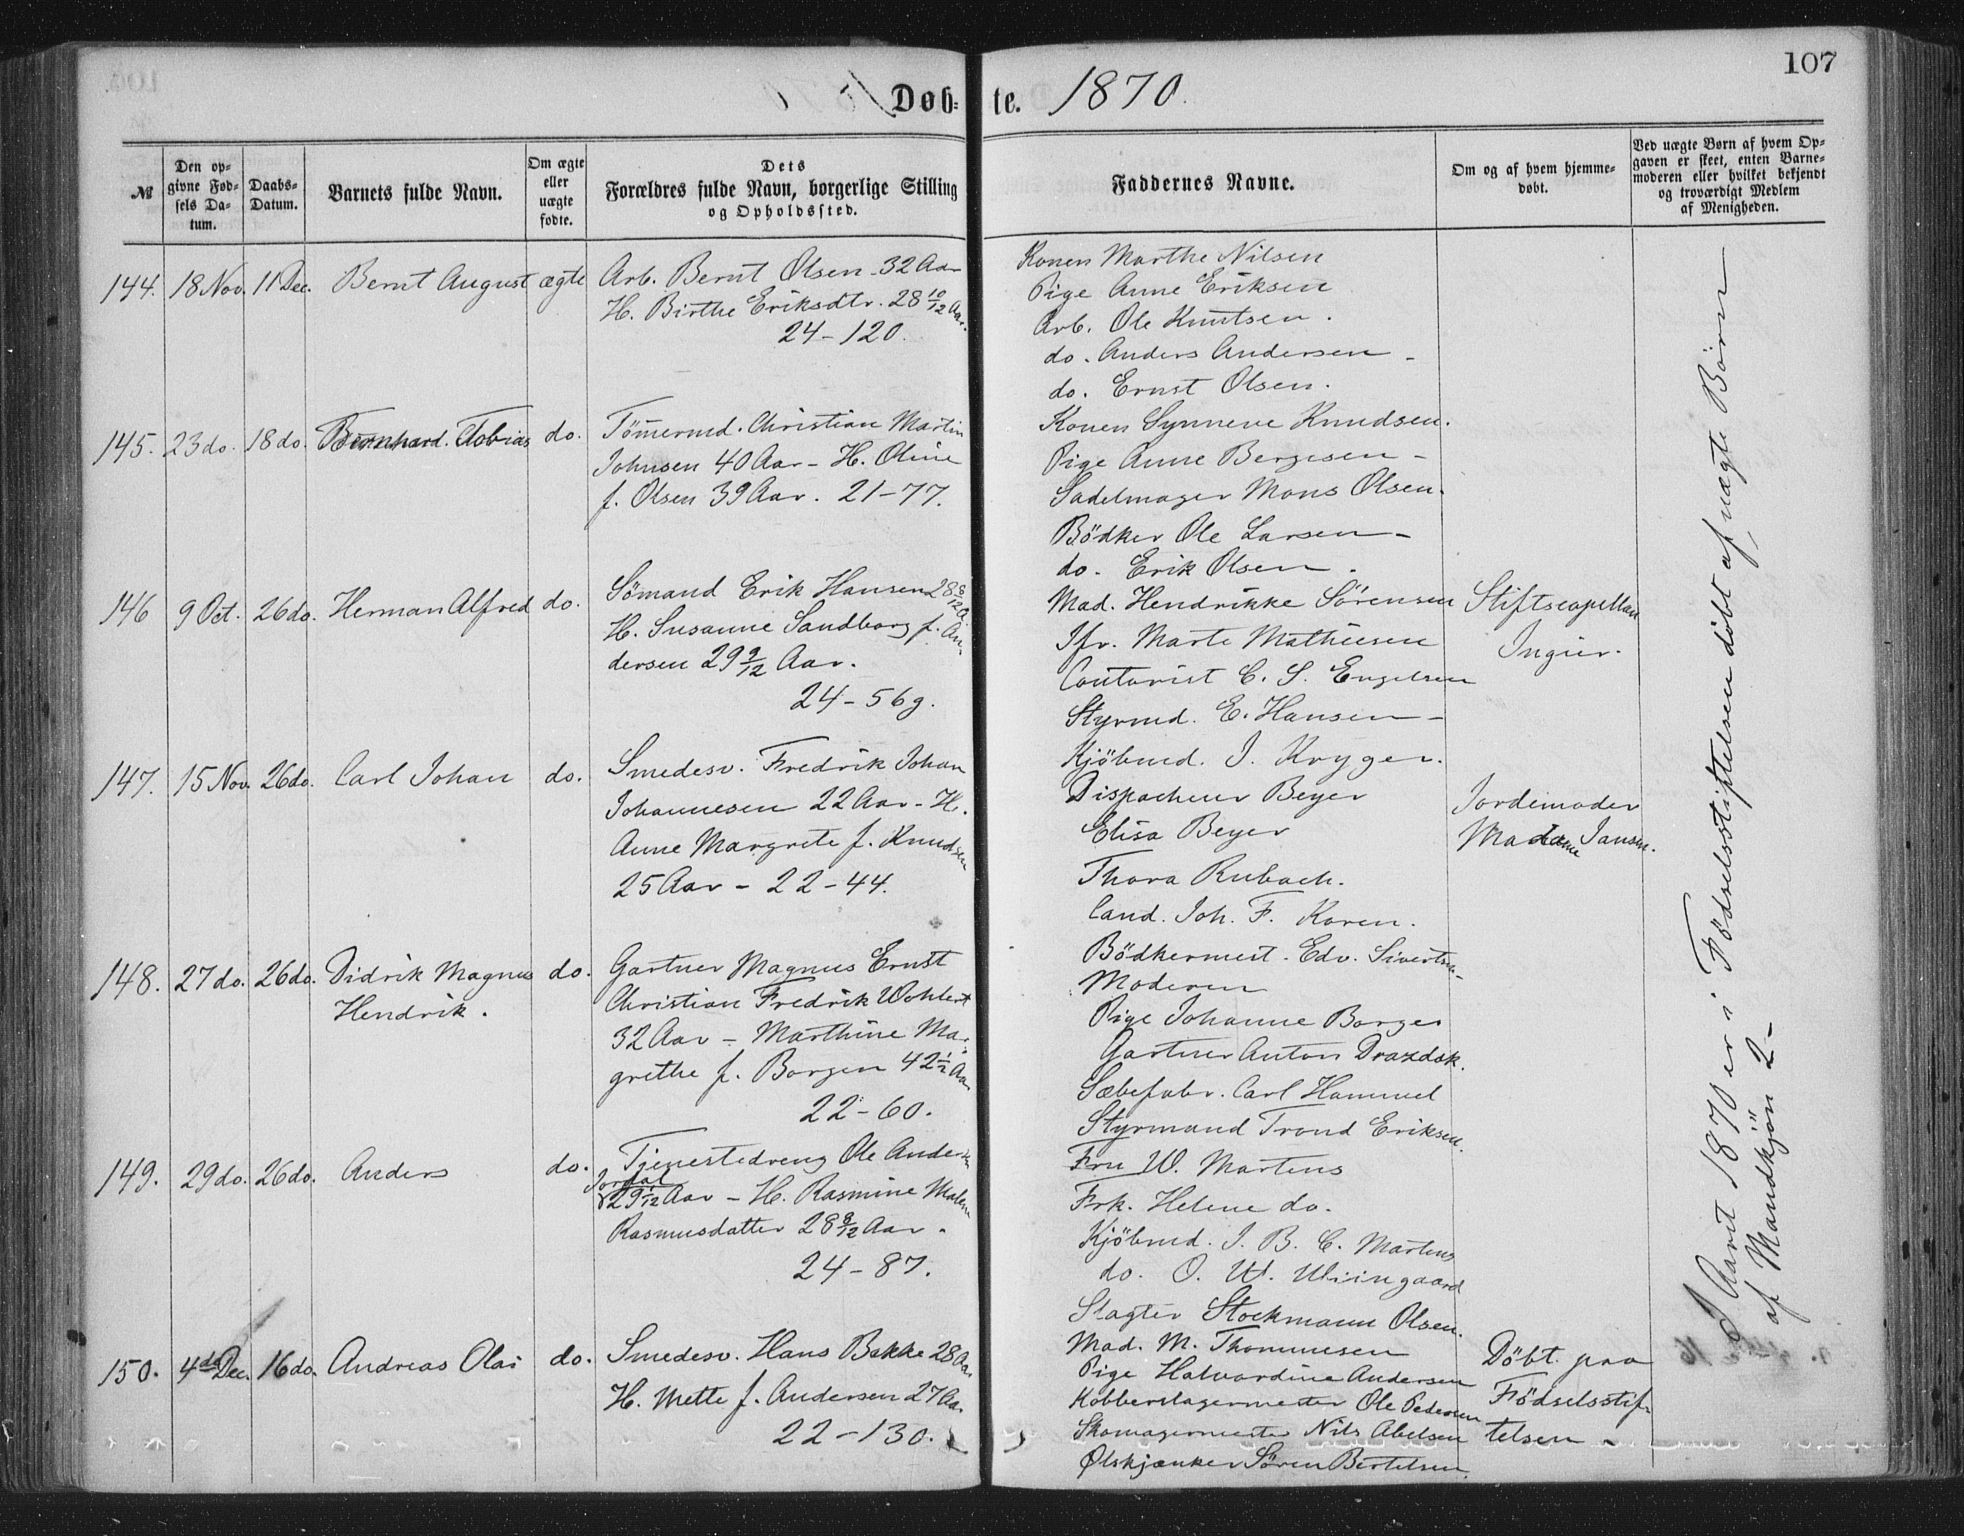 107
Døb=te. 1870.
№
Den op=
givne Fød=
sels Da=
tum.
Daabs=
Datum.
Barnets fulde Navn.
Om ægte
eller
uægte
fødte.
Dets
Forældres fulde Navn, borgerlige Stilling
og Opholdssted.
Faddernes Navne.
Om og af hvem hjemme=
døbt.
Ved uægte Børn af hvem Op=
gaven er skeet, enten Barne=
moderen eller hvilket bekjendt
og troværdigt Medlem
af Menigheden.
144. 18 Nov. 11 Dec. Bernt August ægte
Arb. Bernt Olsen - 32 Aar
H. Birthe Eriksdtr. 28 10/12 Aar.
24 - 120.
Konen Marthe Nilsen
Pige Anne Eriksen
Arb. Ole Knutsen.
do. Anders Andersen -
do. Ernst Olsen.
145. 23 do. 18 do. Bernhard Tobias do.
Tömermd. Christian Martin
Johnsen 40 Aar - H. Oline
f. Olsen 39 Aar. 21 - 77.
Konen Synneve Knudsen.
Pige Anne Bergesen -
Sadelmager Mons Olsen.
Bödker Ole Larsen -
do. Erik Olsen.
146 9 Oct. 26 do. Herman Alfred do.
Sömand Erik Hansen 28 8/12 A.
H. Susanne Sandborg f. An-
dersen 29 9/12 Aar.
24 - 56 g.
Mad. Hendrikke Sörensen
Jfr. Marte Mathiesen
Contorist C. S. Engelsen
Styrmd. E. Hansen -
Kjöbmd. J. Kryger.
Stiftscapellan
Ingier.
147. 15 Nov. 26 do. Carl Johan do.
Smedesv. Fredrik Johan
Johannesen 22 Aar - H.
Anne Margrete f. Knudsen
25 Aar - 22 - 44.
Dispacheur Beyer
Elisa Beyer
Thora Rubach.
Cand. Joh. F. Koren.
Bödkermest. Edv. Sivertsen
Jordemoder
Madame Jansen.
148. 27 do. 26 do. Didrik Magnus do.
Hendrik.
Gartner Magnus Ernst
Christian Fredrik Wohlert
32 Aar - Marthine Mar-
grethe f. Borgen 42 1/2 Aar
22 - 60.
Moderen
Pige Johanne Borgen
Gartner Anton Drazdsk.
Sæbefabr. Carl Hammel
Styrmand Trond Eriksen.
149. 29 do. 26 do. Anders do.
Tjenestedreng Ole Andersen
Jordal
29 1/12 Aar - H. Rasmine Malene
Rasmusdatter 28 8/12 Aar.
24 - 87.
Fru W. Martens
Frk. Helene do.
Kjöbmd. J. B. C. Martens
do. O. W. Wiingaard
Slagter Stockmann Olsen.
150. 4de Dec. 16 do. Andreas Olai do.
Smedesv. Hans Bakke 28 Aar
H. Mette f. Andersen 27 Aar.
22 - 130.
Mad. M. Thommesen
Pige Halvardine Andersen
Kobberslagermester Ole Pedersen
Skomagermester Nils Abelsen
Ølskjænker Sören Bertelsen.
Döbt paa
Födselsstif-
telsen -
I Aaret 1870 er i Födselsstiftelsen döbt af uægte Börn
af Mandkjön 2 -